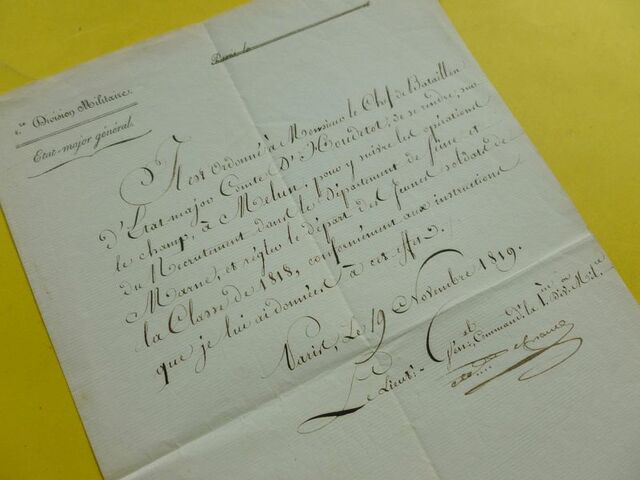 1.re Division Militaire.
Etat-major général.
Paris, le
Il est Ordonné à Monsieur le Chef de Bataillon
d'Etat-major Comte D'Houdetot, de se rendre, sur
le champ, à Melun, pour y suivre les opérations
du Recrutement dans le Département de Seine et
Marne, et régler le départ des jeunes soldats de
la Classe de 1818, conformément aux instructions
que je lui ai données à cet effet.
Paris, Le 19 Novembre 1819.
Le Lieut.t G.al Command.t la 1.re Div.on Mil.re